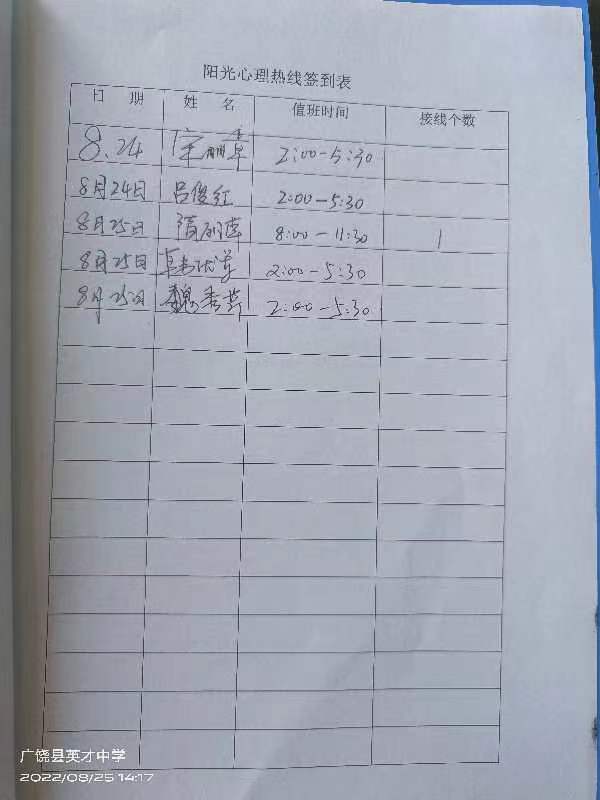 阳光心理热线签到表
日 期 姓 名 值班时间 接线个数
8.24 2:00-5:30
8月24日 吕俊红 2:00-5:30
8月25日 8:00-11:30 1
8月25日 2:00-5:30
8月25日 魏秀芹 2:00-5:30
广饶县英才中学
2022/08/25 14:17